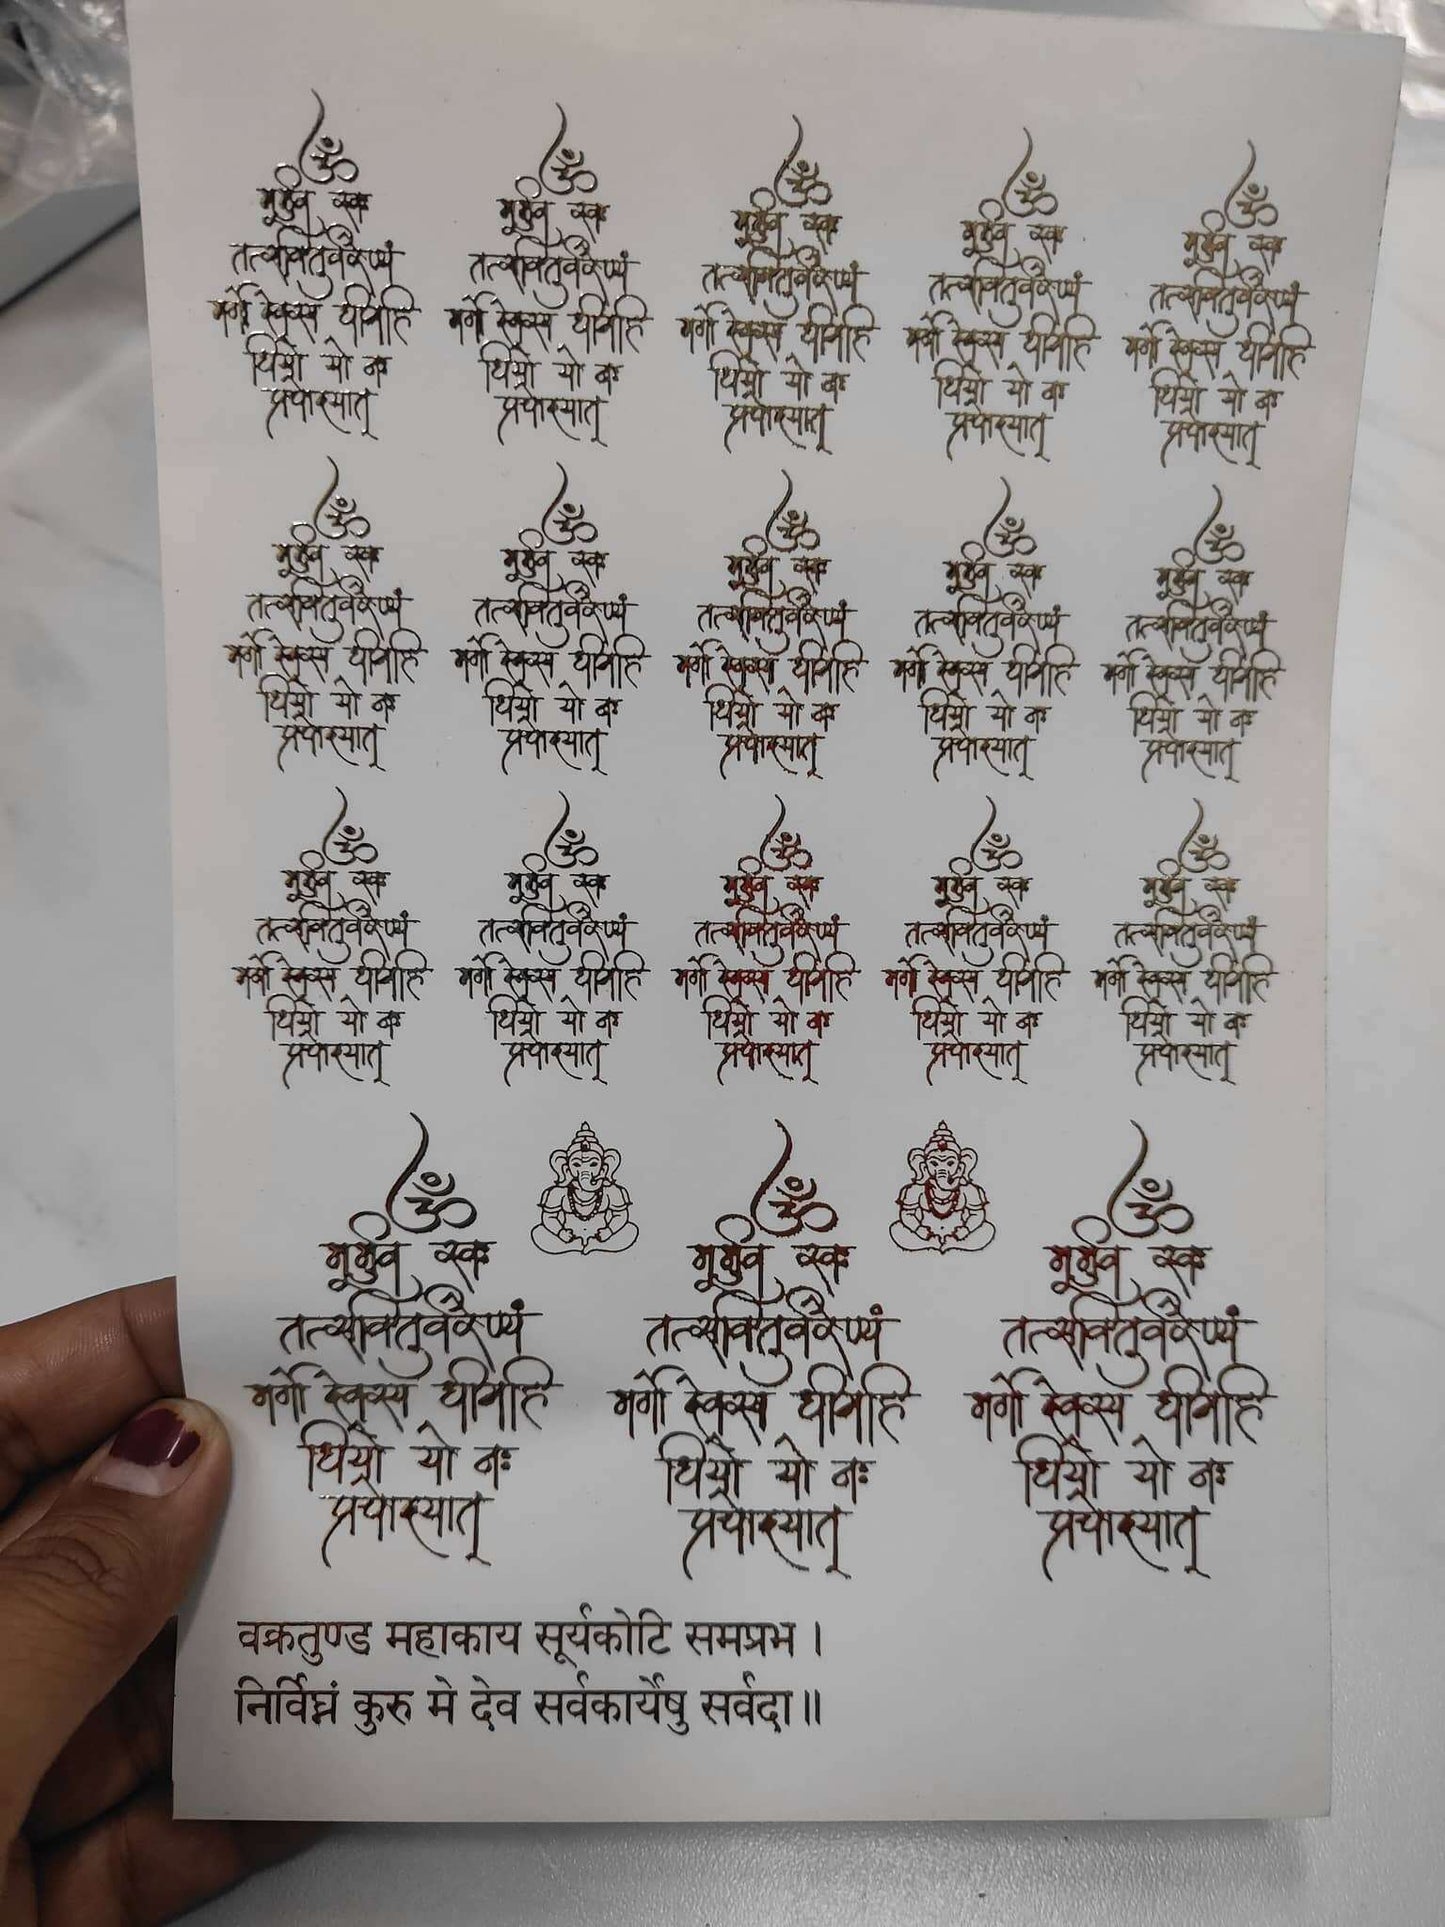 ॐ
भूर्भुव स्वः
तत्सवितुर्वरेण्यं
भर्गो देवस्य धीमहि
धियो यो नः
प्रचोदयात्
ॐ
भूर्भुव स्वः
तत्सवितुर्वरेण्यं
भर्गो देवस्य धीमहि
धियो यो नः
प्रचोदयात्
ॐ
भूर्भुव स्वः
तत्सवितुर्वरेण्यं
भर्गो देवस्य धीमहि
धियो यो नः
प्रचोदयात्
ॐ
भूर्भुव स्वः
तत्सवितुर्वरेण्यं
भर्गो देवस्य धीमहि
धियो यो नः
प्रचोदयात्
ॐ
भूर्भुव स्वः
तत्सवितुर्वरेण्यं
भर्गो देवस्य धीमहि
धियो यो नः
प्रचोदयात्
ॐ
भूर्भुव स्वः
तत्सवितुर्वरेण्यं
भर्गो देवस्य धीमहि
धियो यो नः
प्रचोदयात्
ॐ
भूर्भुव स्वः
तत्सवितुर्वरेण्यं
भर्गो देवस्य धीमहि
धियो यो नः
प्रचोदयात्
ॐ
भूर्भुव स्वः
तत्सवितुर्वरेण्यं
भर्गो देवस्य धीमहि
धियो यो नः
प्रचोदयात्
ॐ
भूर्भुव स्वः
तत्सवितुर्वरेण्यं
भर्गो देवस्य धीमहि
धियो यो नः
प्रचोदयात्
ॐ
भूर्भुव स्वः
तत्सवितुर्वरेण्यं
भर्गो देवस्य धीमहि
धियो यो नः
प्रचोदयात्
ॐ
भूर्भुव स्वः
तत्सवितुर्वरेण्यं
भर्गो देवस्य धीमहि
धियो यो नः
प्रचोदयात्
ॐ
भूर्भुव स्वः
तत्सवितुर्वरेण्यं
भर्गो देवस्य धीमहि
धियो यो नः
प्रचोदयात्
ॐ
भूर्भुव स्वः
तत्सवितुर्वरेण्यं
भर्गो देवस्य धीमहि
धियो यो नः
प्रचोदयात्
ॐ
भूर्भुव स्वः
तत्सवितुर्वरेण्यं
भर्गो देवस्य धीमहि
धियो यो नः
प्रचोदयात्
ॐ
भूर्भुव स्वः
तत्सवितुर्वरेण्यं
भर्गो देवस्य धीमहि
धियो यो नः
प्रचोदयात्
ॐ
भूर्भुव स्वः
तत्सवितुर्वरेण्यं
भर्गो देवस्य धीमहि
धियो यो नः
प्रचोदयात्
ॐ
भूर्भुव स्वः
तत्सवितुर्वरेण्यं
भर्गो देवस्य धीमहि
धियो यो नः
प्रचोदयात्
ॐ
भूर्भुव स्वः
तत्सवितुर्वरेण्यं
भर्गो देवस्य धीमहि
धियो यो नः
प्रचोदयात्
वक्रतुण्ड महाकाय सूर्यकोटि समप्रभ ।
निर्विघ्नं कुरु मे देव सर्वकार्येषु सर्वदा ॥